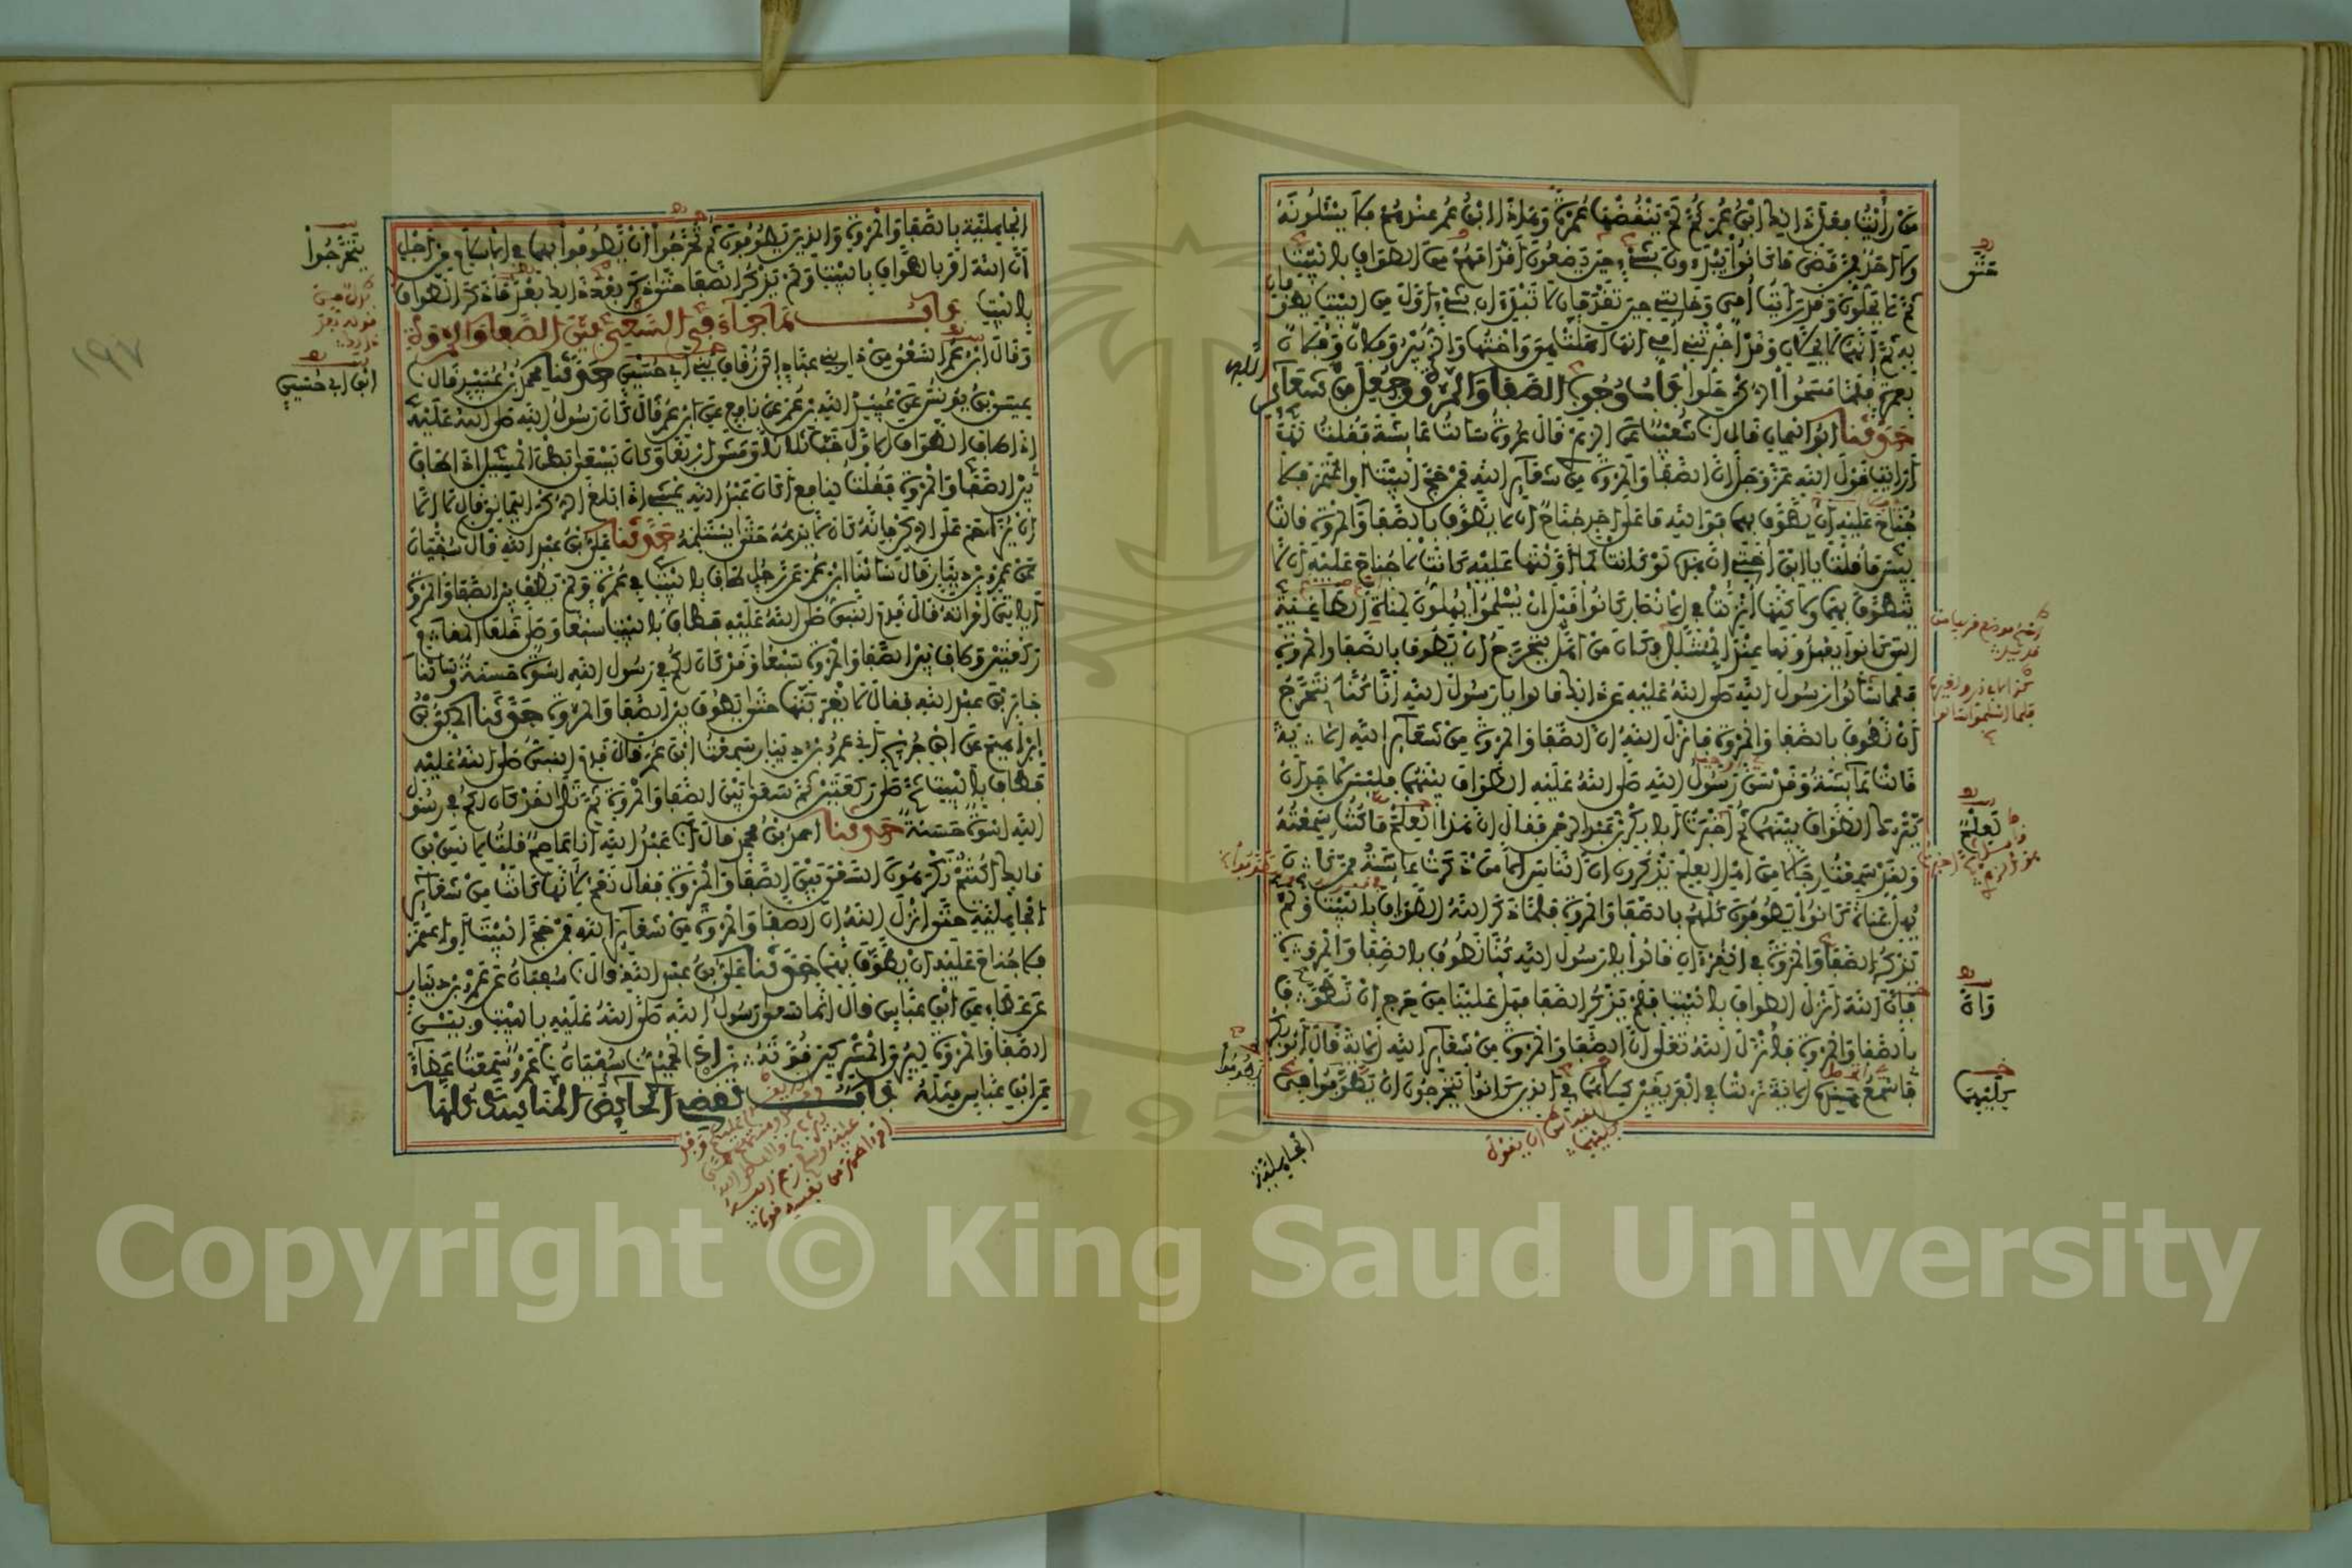 مَن رأيت فعل ذلك ابن عمر ثم لم ينقضها عمرة وهذا ابن عمر عندهم فلا يسئلونه
ولا أحد ممن مضى ما كانوا يبدءون بشيء حين يضعون أقدامهم من الطواف بالبيت
ثم لا يحلون وقد رأيت أمي وخالتي حين تقدمان لا تبتدءان بشيء أول من البيت تطوفان
به ثم إنهما لا تحلان وقد أخبرتني أمي أنها أهلت هي وأختها والزبير وفلان وفلان
بعمرة فلما مسحوا الركن حلوا باب وجوب الصفا والمروة وجعل من شعائر
حدثنا أبو اليمان قال أنا شعيب عن الزهري قال عروة سألت عائشة فقلت لها
أرأيت قول الله عز وجل إن الصفا والمروة من شعائر الله فمن حج البيت أو اعتمر فلا
جناح عليه أن يطوف بهما فوالله ما على أحد جناح أن لا يطوف بالصفا والمروة قالت
بئس ما قلت يا ابن أختي إن هذه لو كانت كما أولتها عليه كانت لا جناح عليه أن لا
يتطوف بهما ولكنها أنزلت في الأنصار كانوا قبل أن يسلموا يهلون لمناة الطاغية
التي كانوا يعبدونها عند المشلل فكان من أهل يتحرج أن يطوف بالصفا والمروة
فلما سألوا رسول الله صلى الله عليه عن ذلك قالوا يا رسول الله إنا كنا نتحرج
أن نطوف بالصفا والمروة فأنزل الله إن الصفا والمروة من شعائر الله الآية
قالت عائشة وقد سن رسول الله صلى الله عليه الطواف بينهما فليس لأحد أن
يترك الطواف بينهما ثم أخبرت أبا بكر بن عبد الرحمن فقال إن هذا لعلم ما كنت سمعته
ولقد سمعت رجالا من أهل العلم يذكرون أن الناس إلا من ذكرت عائشة ممن كان
يهل بمناة كانوا يطوفون كلهم بالصفا والمروة فلما ذكر الله الطواف بالبيت ولم
يذكر الصفا والمروة في القرءان قالوا يا رسول الله كنا نطوف بالصفا والمروة
وإن الله أنزل الطواف بالبيت فلم يذكر الصفا فهل علينا من حرج أن نطوف
بالصفا والمروة فأنزل الله تعالى إن الصفا والمروة من شعائر الله الآية قال أبو بكر
فأسمع هذه الآية نزلت في الفريقين كليهما في الذين كانوا يتحرجون أن يطوفوا في
الجاهلية
الجاهلية بالصفا والمروة والذين يطوفون ثم تحرجوا أن يطوفوا بهما في الإسلام من أجل
أن الله أمر بالطواف بالبيت ولم يذكر الصفا حتى ذكر بعد ذلك بعدما ذكر الطواف
بالبيت باب ما جاء في السعي بين الصفا والمروة
وقال ابن عمر السعي من دار بني عباد إلى زقاق بني أبي حسين حدثنا محمد بن عبيد قال نا
عيسى بن يونس عن عبيد الله بن عمر عن نافع عن ابن عمر قال كان رسول الله صلى الله عليه
إذا طاف الطواف الأول خب ثلاثا ومشى أربعا وكان يسعى بطن المسيل إذا طاف
بين الصفا والمروة فقلت لنافع أكان عبد الله يمشي إذا بلغ الركن اليماني قال لا إلا
أن يزاحم على الركن فإنه كان لا يدعه حتى يستلمه حدثنا علي بن عبد الله قال نا سفيان
عن عمرو بن دينار قال سألنا ابن عمر عن رجل طاف بالبيت في عمرة ولم يطف بين الصفا والمروة
أيأتي امرأته قال قدم النبي صلى الله عليه فطاف بالبيت سبعا وصلى خلف المقام
ركعتين وطاف بين الصفا والمروة سبعا وقد كان لكم في رسول الله أسوة حسنة وسألنا
جابر بن عبد الله فقال لا يقربنها حتى يطوف بين الصفا والمروة حدثنا المكي بن
إبراهيم عن ابن جريج أخبرني عمرو بن دينار سمعت ابن عمر قال قدم النبي صلى الله عليه
فطاف بالبيت ثم صلى ركعتين ثم سعى بين الصفا والمروة ثم تلا لقد كان لكم في رسول
الله أسوة حسنة حدثنا أحمد بن محمد قال أنا عبد الله أنا عاصم قلت لأنس بن
مالك أكنتم تكرهون السعي بين الصفا والمروة فقال نعم لأنها كانت من شعائر
الجاهلية حتى أنزل الله إن الصفا والمروة من شعائر الله فمن حج البيت أو اعتمر
فلا جناح عليه أن يطوف بهما حدثنا علي بن عبد الله قال نا سفيان عن عمرو بن دينار
عن عطاء عن ابن عباس قال إنما سعى رسول الله صلى الله عليه بالبيت وبين
الصفا والمروة ليري المشركين قوته زاد الحميدي نا سفيان نا عمرو سمعت عطاء
عن ابن عباس مثله باب تقضي الحائض المناسك كلها
يتحرجوا
ابن أبي حسين
١٩٧
لعلم
كليهما
Copyright © King Saud University
1957